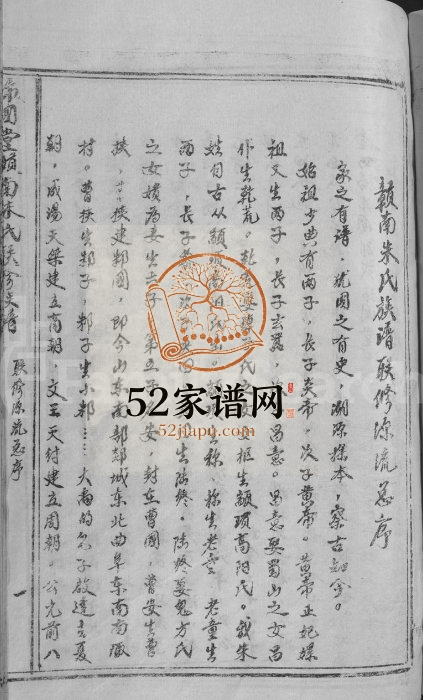 赣南朱氏族谱联修源流总序
家之有谱，犹国之有史，溯源探本，察古知今。
始祖少典有两子，长子炎帝，次子黄帝。黄帝正妃嫘
祖又生两子，长子玄嚣，昌意。昌意娶蜀山之女昌
仆生乾荒。乾荒娶 氏之女 枢生颛顼高阳氏。我朱
姓自古从颛顼高阳氏 称，称生老童。老童生
两子，长子 次子 生陆终。陆终娶鬼方氏
之女嬇为妻生六子，第五子 安，封在曹国，曹安生曹
挟，曹挟建邾国，即今山东南部邹城东北曲阜东南南陬
村。曹挟生邾子，邾子生小邾……大禹的儿子启建立夏
朝，成汤灭桀建立商朝，文王灭纣建立周朝。公元前八
国堂赣南朱氏联修文谱
联修源流总序
一
52家谱网
52jiapu.com